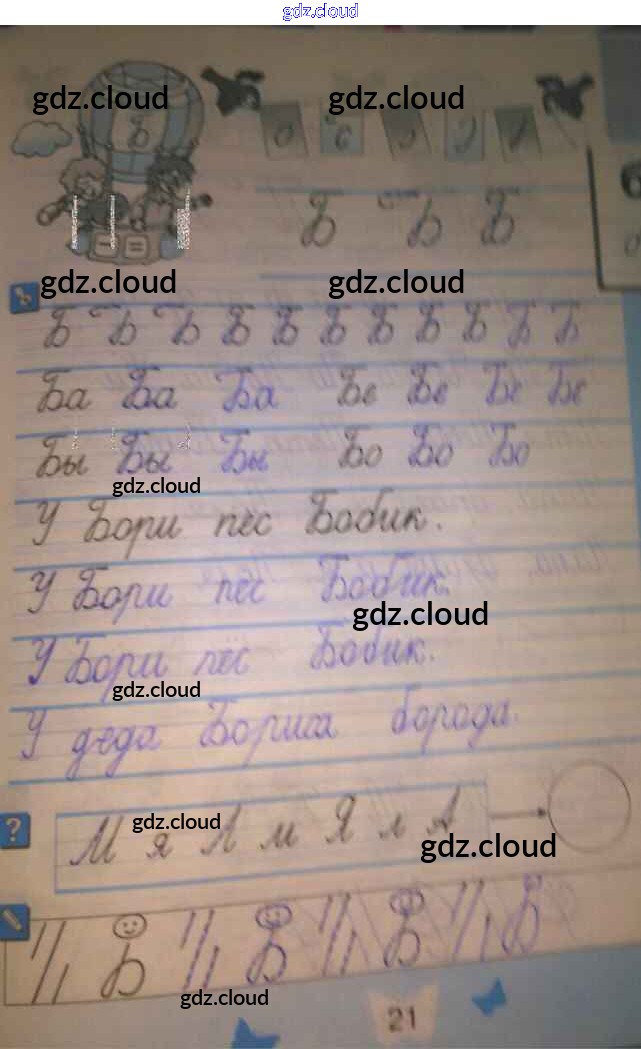 gdz.cloud
gdz.cloud gdz.cloud
Б
Б Б Б
gdz.cloud gdz.cloud
Б Б Б Б Б Б Б Б Б Б Б
Ба Ба Ба Бе Бе Бе Бе
Бы Бы Бы Бо Бо Бо
gdz.cloud
У Бори пёс Бобик.
У Бори пёс Бобик.
gdz.cloud
У Бори пёс Бобик.
gdz.cloud
У деда Бориса борода.
? М я Л м Я л А
gdz.cloud
gdz.cloud
Б Б Б Б
gdz.cloud
21